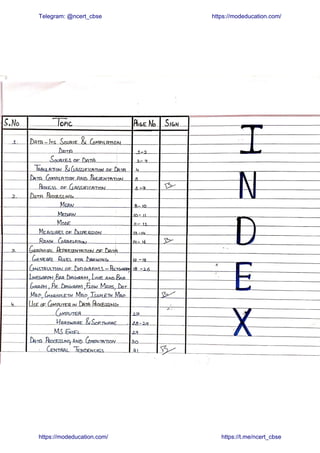 Telegram: @ncert_cbse https://modeducation.com/
S.No Topic Page No Sign
1 Data - Its Source & Compilation
Data 1-2
Sources of Data 2-4
Tabulation & Classification of Data 4
Data Compilation and Presentation
Process of Classification
2. Data Processing
Mean 8-10
Median 10-11
Mode 11-12
Measures of Dispersion
Rank Correlation
3. Graphical Representation of Data
General Rules for Drawing
Construction of Diagrams - 18-26
Linegraph, Bar Diagram, Line and Bar
Graph, Pie Diagram, Flow Maps, Dot
Map, Map, Isopleth Map
4. Use of Computer in Data Processing
Computer
Hardware & Software 28-29
MS Excel 29
Data Processing and Computation 30
Central Tendencies 31
INDEX
https://modeducation.com/ https://t.me/ncert_cbse